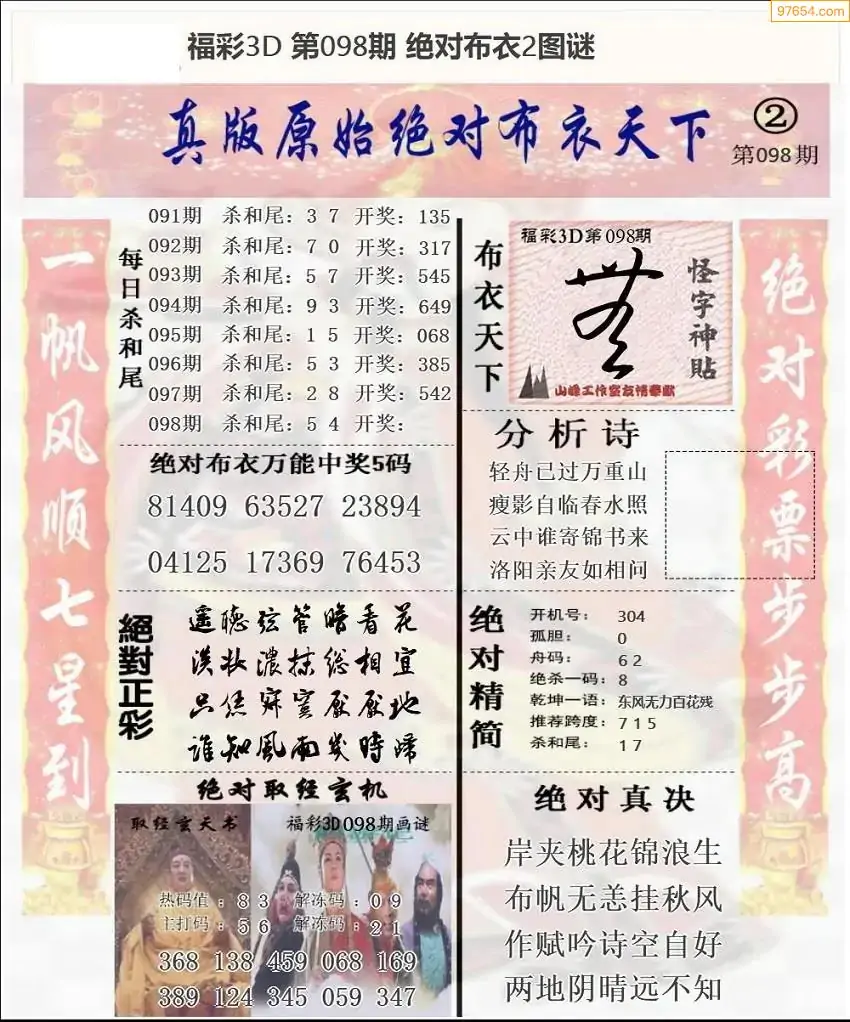 97654.com
福彩3D 第098期 绝对布衣2图谜
真版原始绝对布衣天下
②
第098期
一帆风顺七星到
每日杀和尾
091期 杀和尾：3 7 开奖：135
092期 杀和尾：7 0 开奖：317
093期 杀和尾：5 7 开奖：545
094期 杀和尾：9 3 开奖：649
095期 杀和尾：1 5 开奖：068
096期 杀和尾：5 3 开奖：385
097期 杀和尾：2 8 开奖：542
098期 杀和尾：5 4 开奖：
绝对布衣万能中奖5码
81409 63527 23894
04125 17369 76453
絕對正彩
遥聽弦管暗看花
淡妆濃抹総相宜
誰知風雨幾時歸
绝对取经玄机
取经玄天书
福彩3D098期画谜
热码值：8 3 解冻码：0 9
主打码：5 6 解冻码：2 1
368 138 459 068 169
389 124 345 059 347
布衣天下
福彩3D第098期
怪字神貼
山峰工作室友情奉献
分析诗
轻舟已过万重山
瘦影自临春水照
云中谁寄锦书来
洛阳亲友如相问
绝对精简
开机号： 304
孤胆： 0
舟码： 6 2
绝杀一码：8
乾坤一语：东风无力百花残
推荐跨度：7 1 5
杀和尾： 1 7
绝对真决
岸夹桃花锦浪生
布帆无恙挂秋风
作赋吟诗空自好
两地阴晴远不知
绝对彩票步步高